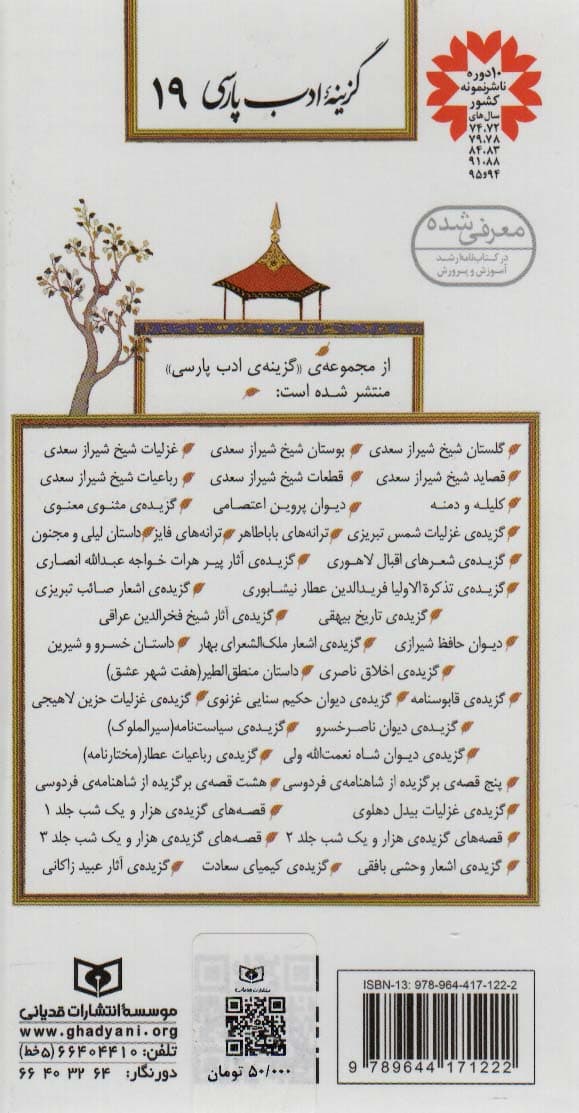 ۱۰ دوره
ناشر نمونه
کشور
سال‌های
۷۴،۷۲
۷۹،۷۸
۸۴،۸۳
۹۱،۸۸
۹۴و۹۵
گزینهٔ ادب پارسی ۱۹
معرفی شده
در کتاب‌نامه رشد
آموزش و پرورش
از مجموعه‌ی «گزینه‌ی ادب پارسی»
منتشر شده است:
گلستان شیخ شیراز سعدی بوستان شیخ شیراز سعدی غزلیات شیخ شیراز سعدی
قصاید شیخ شیراز سعدی قطعات شیخ شیراز سعدی رباعیات شیخ شیراز سعدی
کلیله و دمنه دیوان پروین اعتصامی گزیده‌ی مثنوی معنوی
گزیده‌ی غزلیات شمس تبریزی ترانه‌های باباطاهر ترانه‌های فایز داستان لیلی و مجنون
گزیده‌ی شعرهای اقبال لاهوری گزیده‌ی آثار پیر هرات خواجه عبدالله انصاری
گزیده‌ی تذکرة الاولیا فریدالدین عطار نیشابوری گزیده‌ی اشعار صائب تبریزی
گزیده‌ی تاریخ بیهقی گزیده‌ی آثار شیخ فخرالدین عراقی
دیوان حافظ شیرازی گزیده‌ی اشعار ملک‌الشعرای بهار داستان خسرو و شیرین
گزیده‌ی اخلاق ناصری داستان منطق‌الطیر(هفت شهر عشق)
گزیده‌ی قابوسنامه گزیده‌ی دیوان حکیم سنایی غزنوی گزیده‌ی غزلیات حزین لاهیجی
گزیده‌ی دیوان ناصرخسرو گزیده‌ی سیاست‌نامه(سیرالملوک)
گزیده‌ی دیوان شاه نعمت‌الله ولی گزیده‌ی رباعیات عطار(مختارنامه)
پنج قصه‌ی برگزیده از شاهنامه‌ی فردوسی هشت قصه‌ی برگزیده از شاهنامه‌ی فردوسی
گزیده‌ی غزلیات بیدل دهلوی قصه‌های گزیده‌ی هزار و یک شب جلد ۱
قصه‌های گزیده‌ی هزار و یک شب جلد ۲ قصه‌های گزیده‌ی هزار و یک شب جلد ۳
گزیده‌ی اشعار وحشی بافقی گزیده‌ی کیمیای سعادت گزیده‌ی آثار عبید زاکانی
موسسه انتشارات قدیانی
www.ghadyani.org
تلفن: ۶۶۴۰۴۴۱۰ (۵ خط)
دورنگار: ۶۶ ۴۰ ۳۲ ۶۴
انتشارات قدیانی
۵۰/۰۰۰ تومان
ISBN-13: 978-964-417-122-2
9 789644 171222